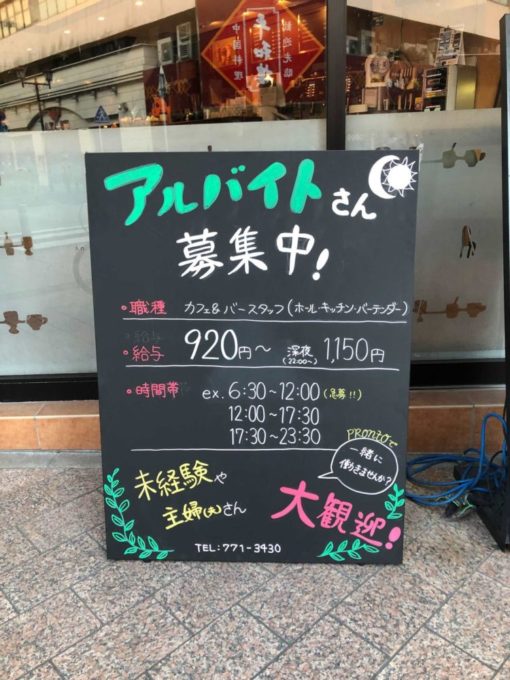 平和樓
中国料理
アルバイトさん
募集中!
・職種 カフェ&バースタッフ(ホール・キッチン・バーテンダー)
・給与 920円〜 深夜(22:00〜) 1,150円
・時間帯 ex. 6:30〜12:00(急募!!)
12:00〜17:30
17:30〜23:30
PRONTOで
一緒に
働きませんか?
未経験や
主婦(夫)さん
大歓迎!
TEL:771-3430